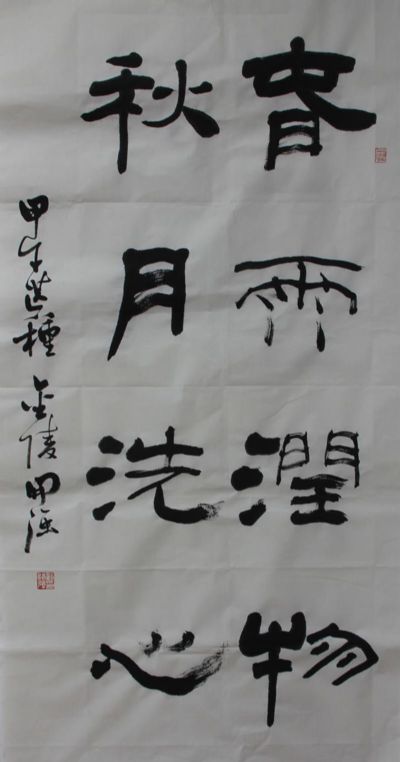 春雨潤物
秋月洗心
甲午芒種 金陵甲強